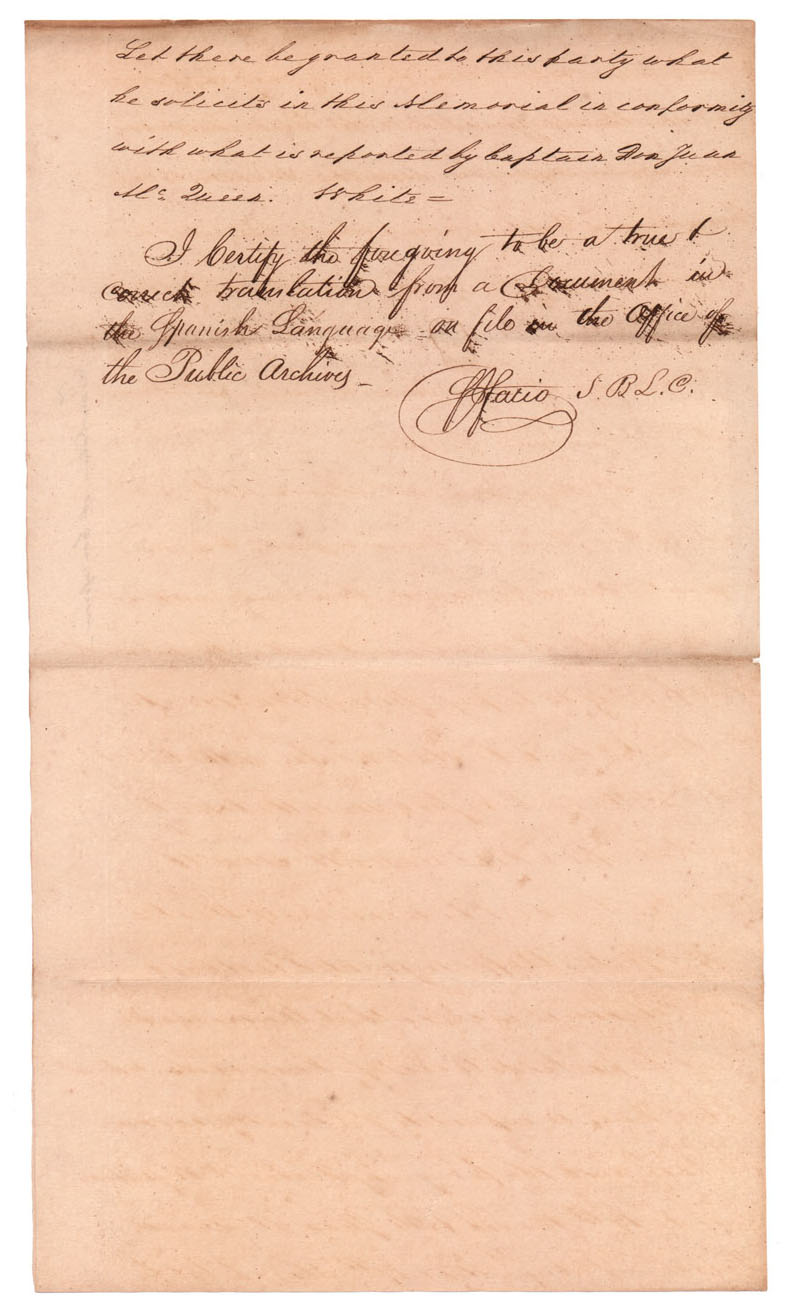 Let there be granted to this party what
he solicits in this Memorial in conformity
with what is reported by Captain Don Juan
Mc. Queen. White =
I Certify the foregoing to be a true &
correct translation from a Document in
the Spanish Language on file in the Office of
the Public Archives _
Fatio S B L. C.